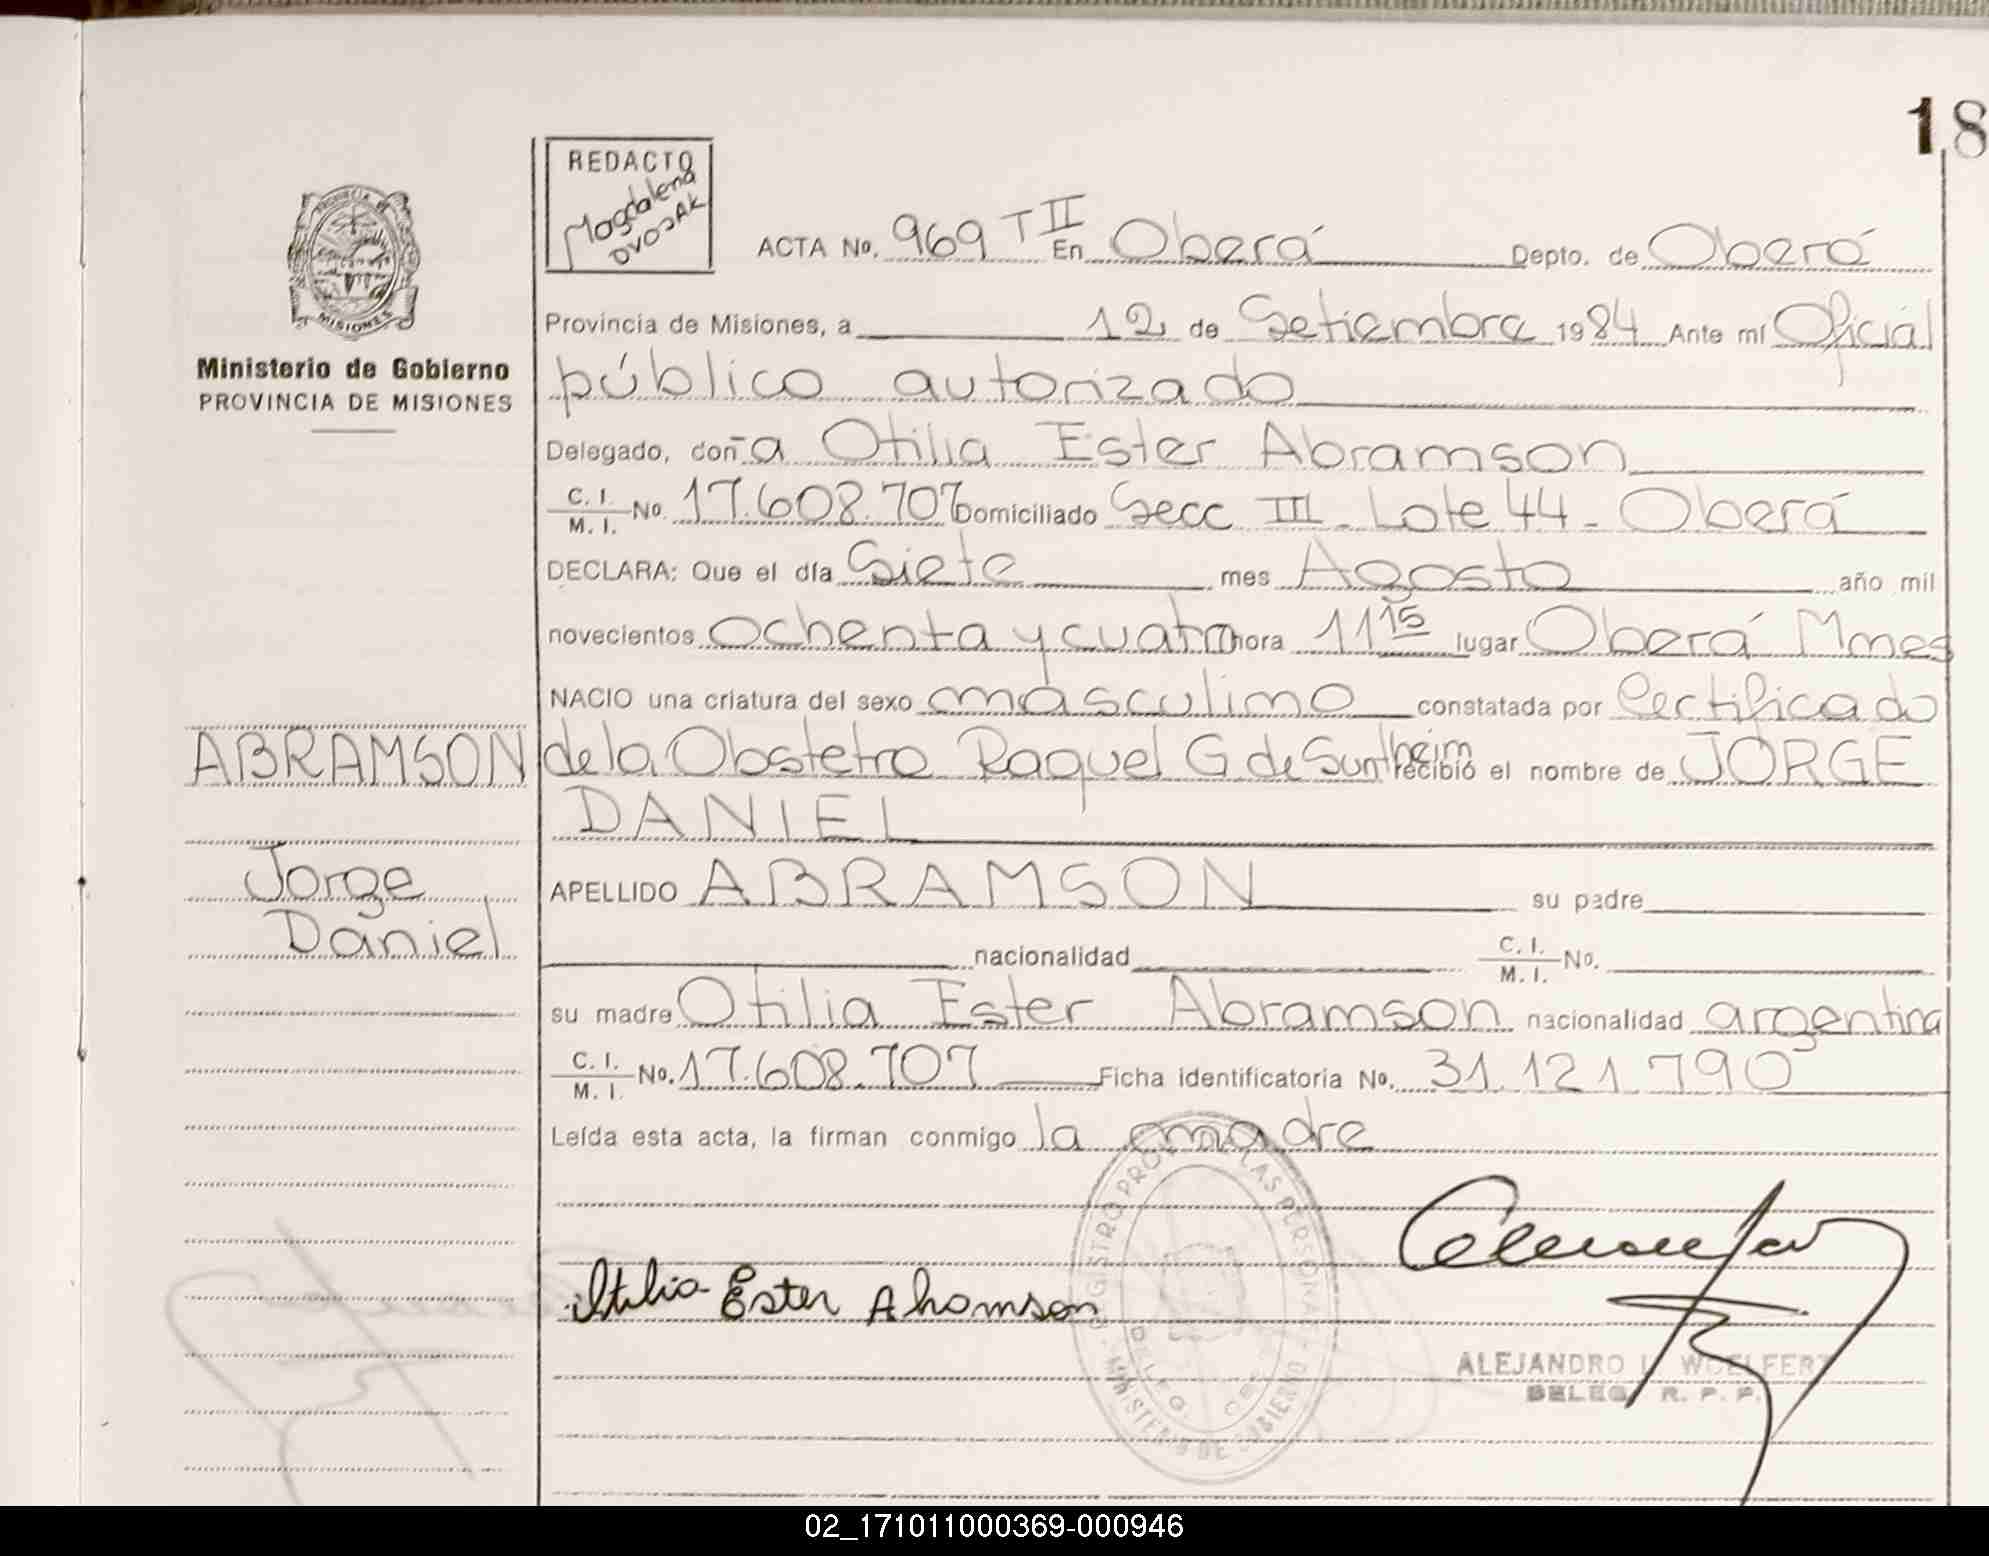 18
REDACTO
Magdalena
OVOJAK
PROVINCIA DE
MISIONES
Ministerio de Gobierno
PROVINCIA DE MISIONES
ACTA No. 969 T II En Oberá Depto. de Oberá
Provincia de Misiones, a 12 de Setiembre 1984 Ante mí Oficial
público autorizado
Delegado, doña Otilia Ester Abramson
C. I. / M. I. No. 17.608.707 Domiciliado Secc III - Lote 44 - Oberá
DECLARA: Que el día Siete mes Agosto año mil
novecientos ochenta y cuatro hora 11 15 lugar Oberá Mnes
NACIO una criatura del sexo masculino constatada por Certificado
de la Obstetra Raquel G de Suntheim recibió el nombre de JORGE
DANIEL
ABRAMSON
Jorge
Daniel
APELLIDO ABRAMSON su padre
nacionalidad C. I. / M. I. No.
su madre Otilia Ester Abramson nacionalidad argentina
C. I. / M. I. No. 17.608.707 Ficha identificatoria No. 31.121.790
Leída esta acta, la firman conmigo la madre
Otilia Ester Abramson
MINISTERIO DE GOBIERNO
ALEJANDRO WOELFERT
DELEG. R. P. P.
02_171011000369-000946